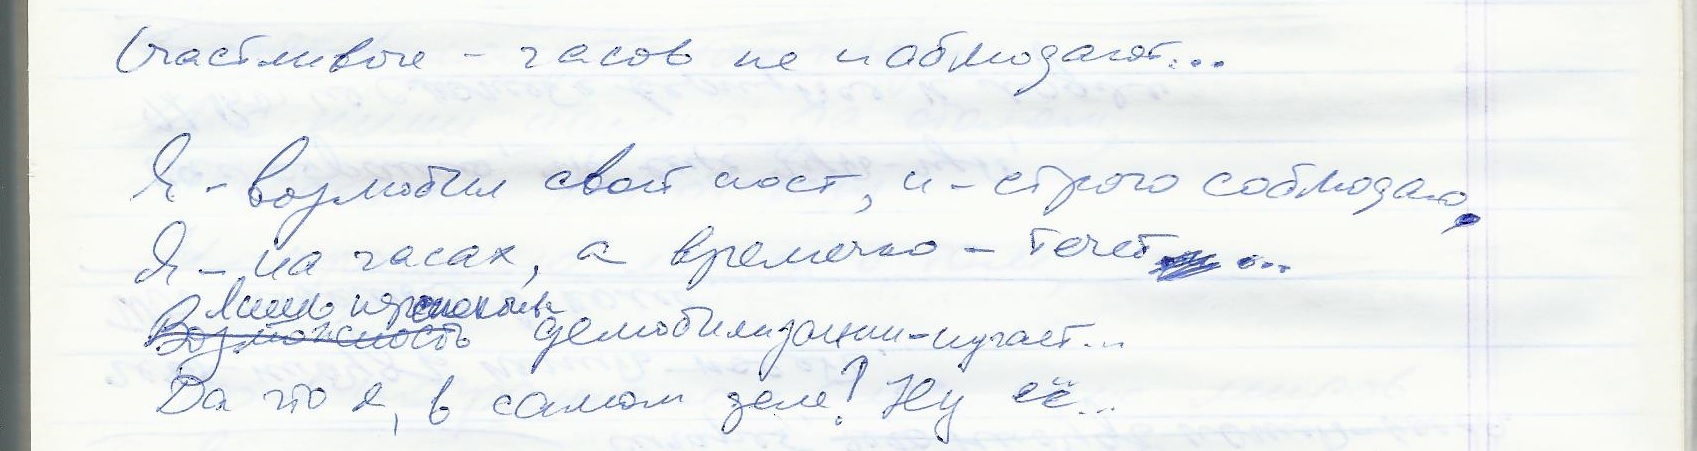 Счастливые - часов не наблюдают...
Я - возлюбил свой пост, и - строго соблюдаю,
Я - на часах, а времечко - течет ...
Лишь
Возможность демобилизации - пугает...
Да что я, в самом деле? Ну её...